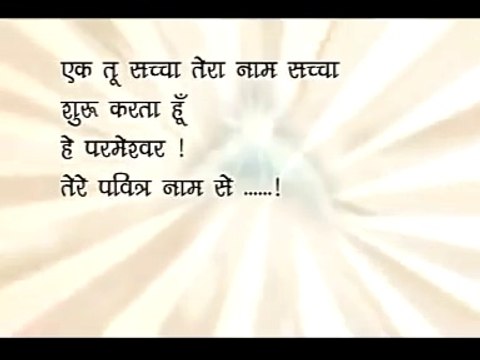 एक तू सच्चा तेरा नाम सच्चा
शुरू करता हूँ
हे परमेश्वर !
तेरे पवित्र नाम से ......!